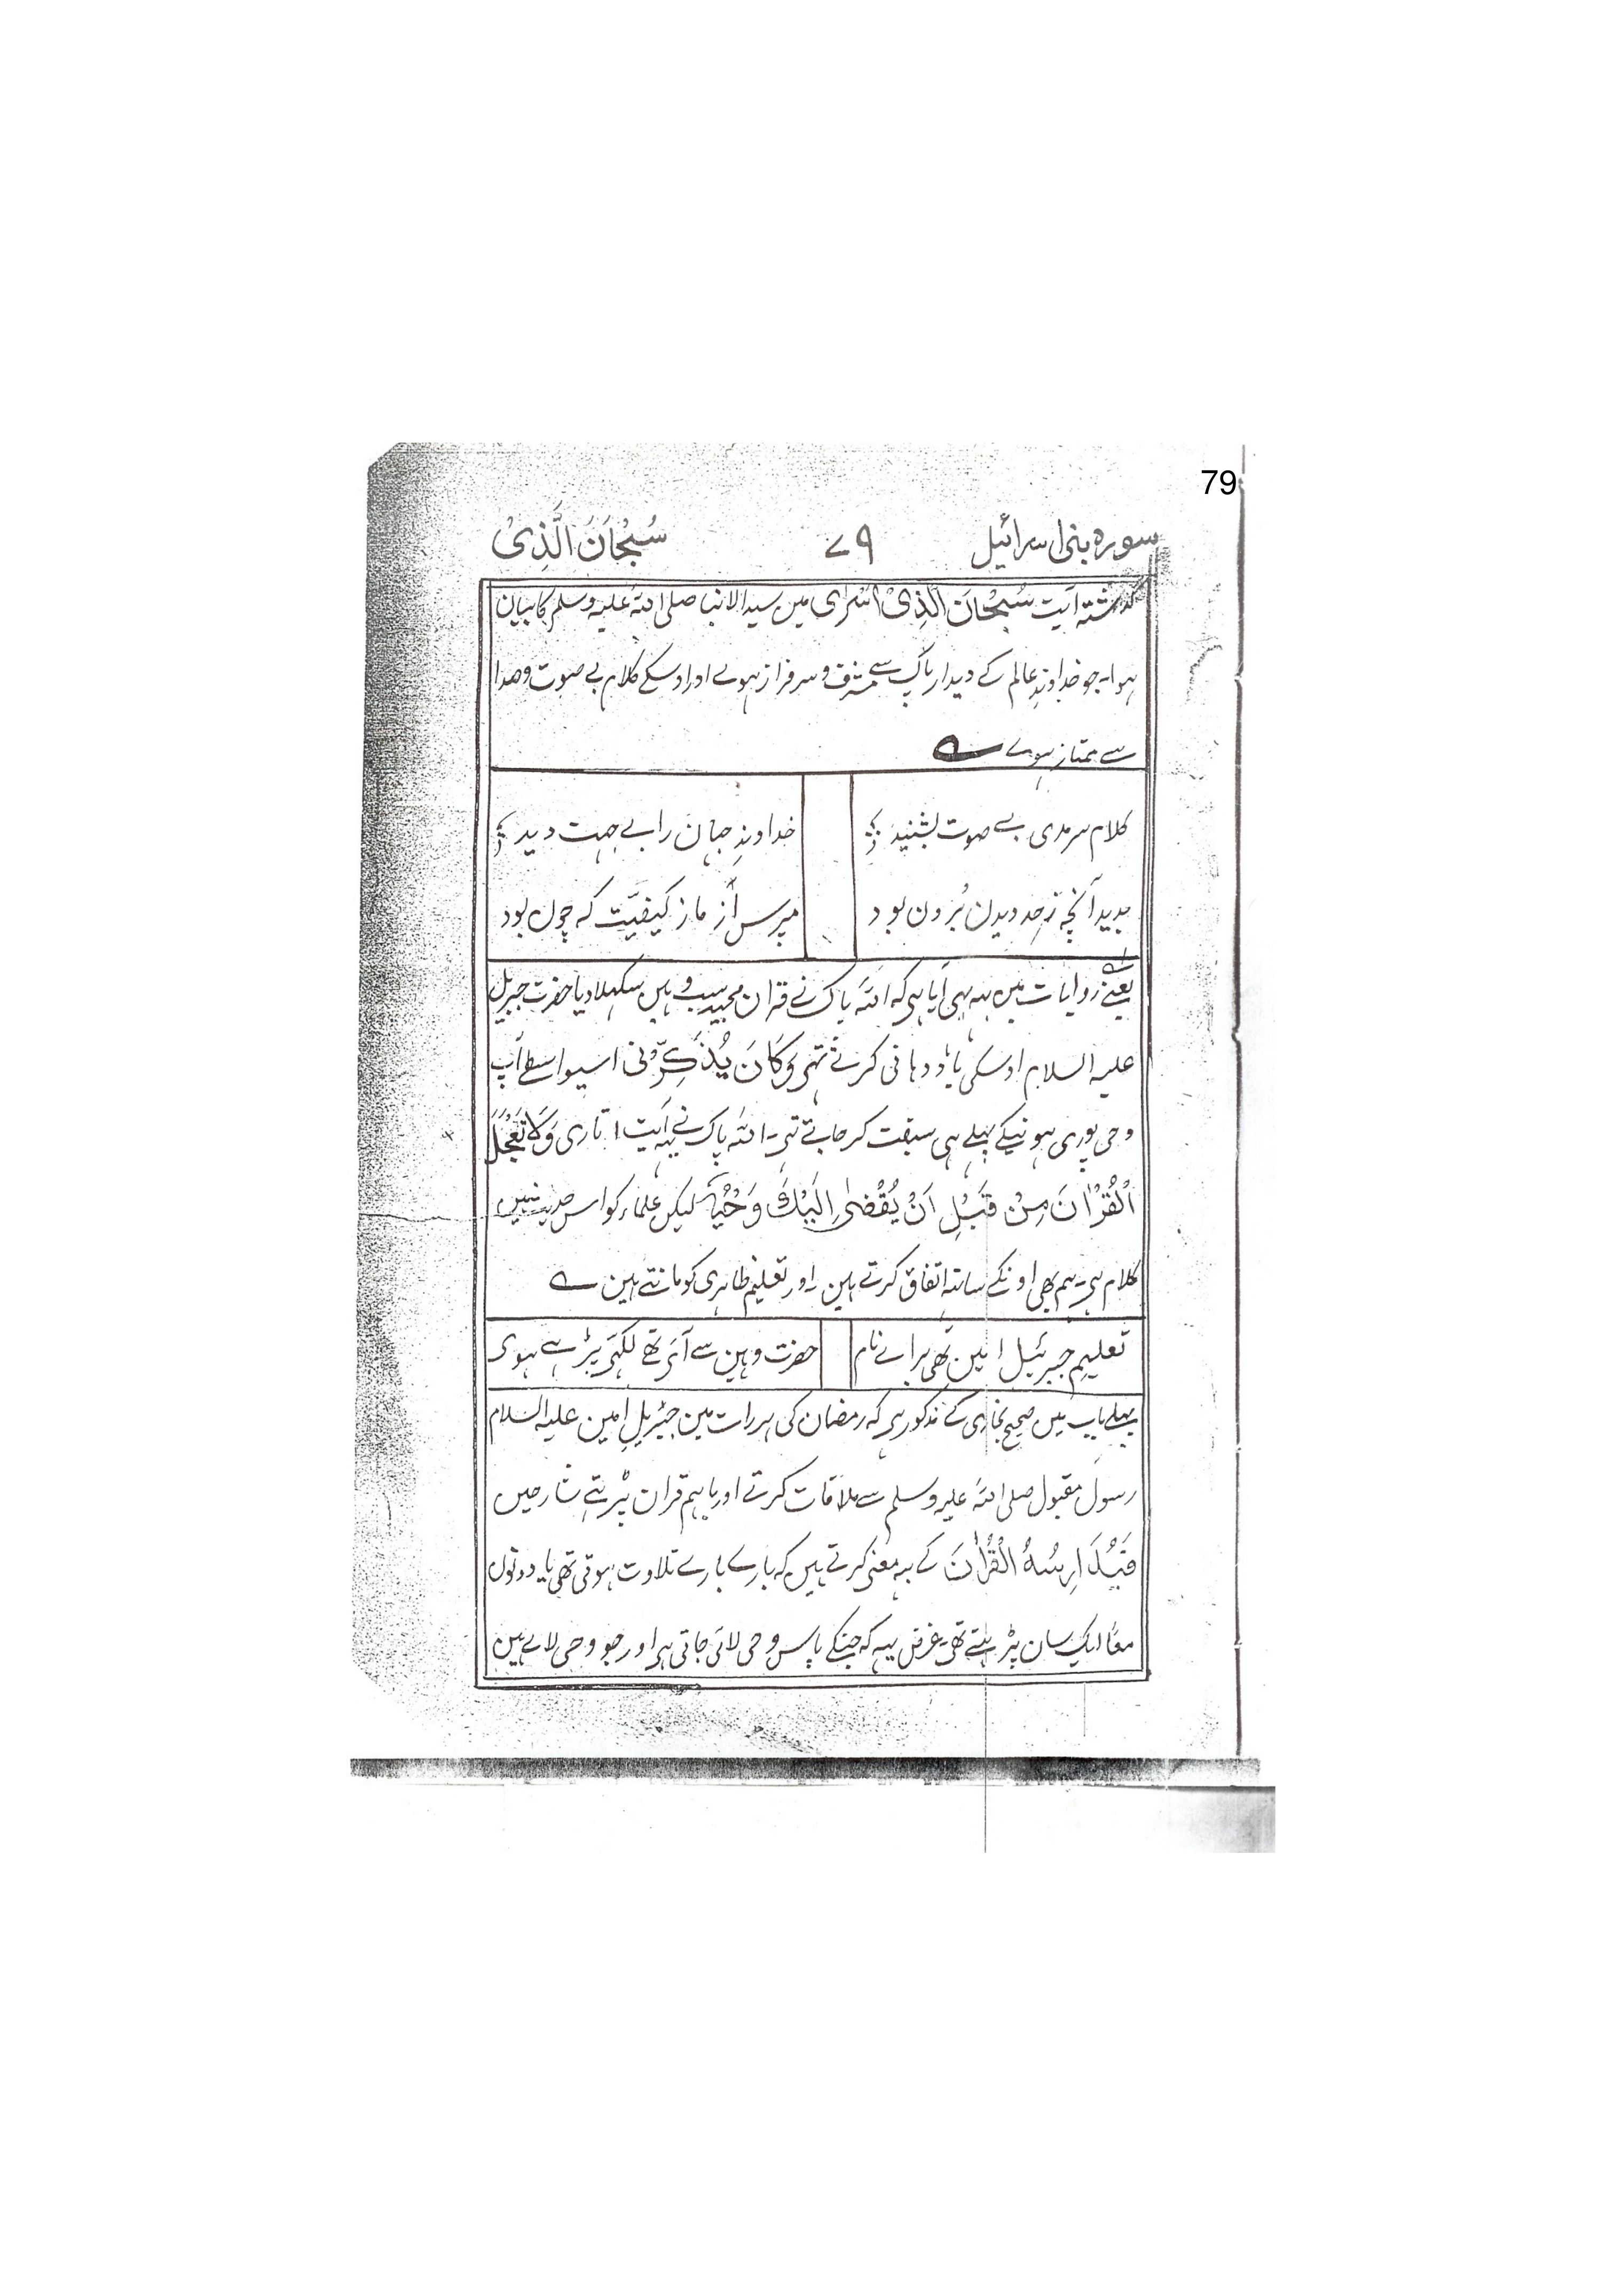 79
سورہ بنی اسرائیل ۷۹ سُبْحَانَ الَّذِیْ
گذشتہ آیت سُبْحَانَ الَّذِیْ اَسْرٰی میں سید الانبیا صلی اللہ علیہ وسلم کا بیان
ہوا۔ جو خداوندِ عالم کے دیدار پاک سے مشرف و سرفراز ہوے اور اوسکے کلام بے صوت و صدا
سے ممتاز ہوے ؎
کلام سرمدی بے صوت بشنید خداوندِ جہان را بے جہت دید
بدید آنچہ زحد دیدن بُرون بود مپرس از ما ز کیفیّت کہ چون بود
بعضے روایات میں یہ بہی آیا ہی کہ اللہ پاک نے قران مجید سب وہیں سکہلا دیا حضرت جبریل
علیہ السلام اوسکی یاد دہانی کرتے تہے وَکَانَ یُذَکِّرُنی اسیواسطے آپ
وحی پوری ہونیکے پہلے ہی سبقت کر جاتے تہے۔ اللہ پاک نے یہ آیت اتاری وَلَا تَعْجَلْ
الْقُرْاٰنَ مِنْ قَبْلِ اَنْ یُقْضٰی اِلَیْكَ وَحْیُهٗ لیکن علماء کو اس حدیث میں
کلام ہی۔ ہم بھی اونکے ساتہ اتفاق کرتے ہین۔ اور تعلیم ظاہری کو مانتے ہین ؎
تعلیمِ جبرئیل امین تھی براے نام حضرت وہین سے آئے تھے لکھے پڑے ہوی
پہلے باب میں صحیح بخاری کے مذکور ہی کہ رمضان کی ہر رات مین جبریلِ امین علیہ السلام
رسول مقبول صلی اللہ علیہ وسلم سے ملاقات کرتے اور باہم قران پڑہتے شارحیں
فَیُدَارِسُهُ الْقُرْاٰنَ کے یہ معنی کرتے ہیں کہ بارے بارے تلاوت ہوتی تھی یا دونوں
معًا ایک سان پڑہتے تھے۔ غرض یہہ کہ جنکے پاس وحی لائی جاتی ہی اور جو وحی لاے ہین